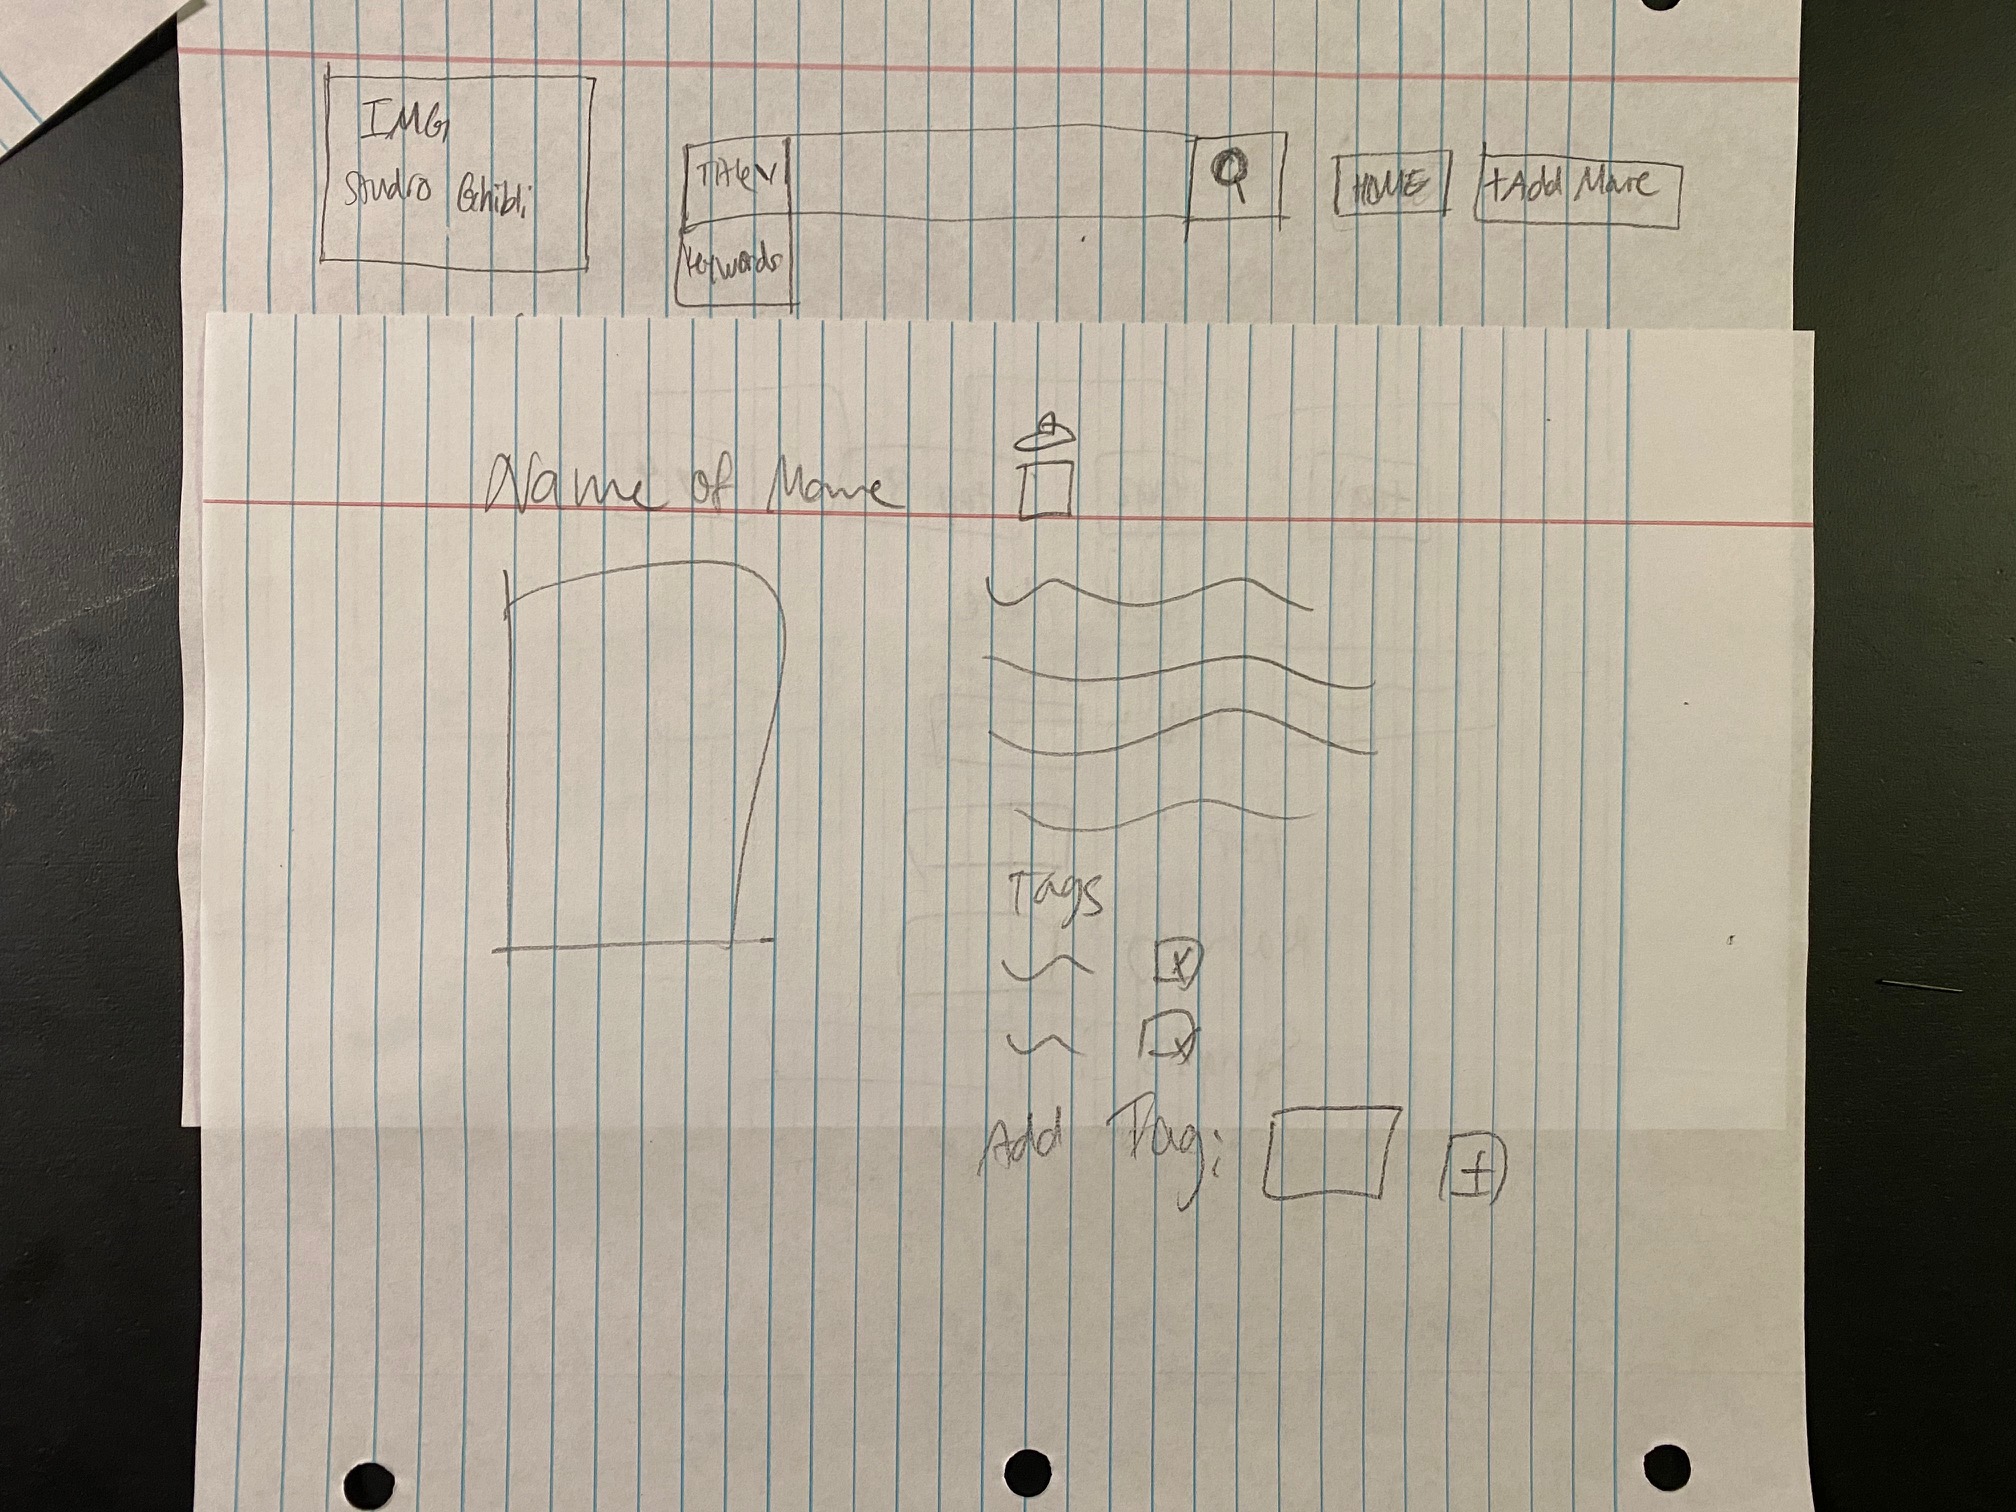 IMG
Studio Ghibli
Title V
Keywords
HOME
+Add Movie
Name of Movie
Tags
x
x
Add Tag:
+